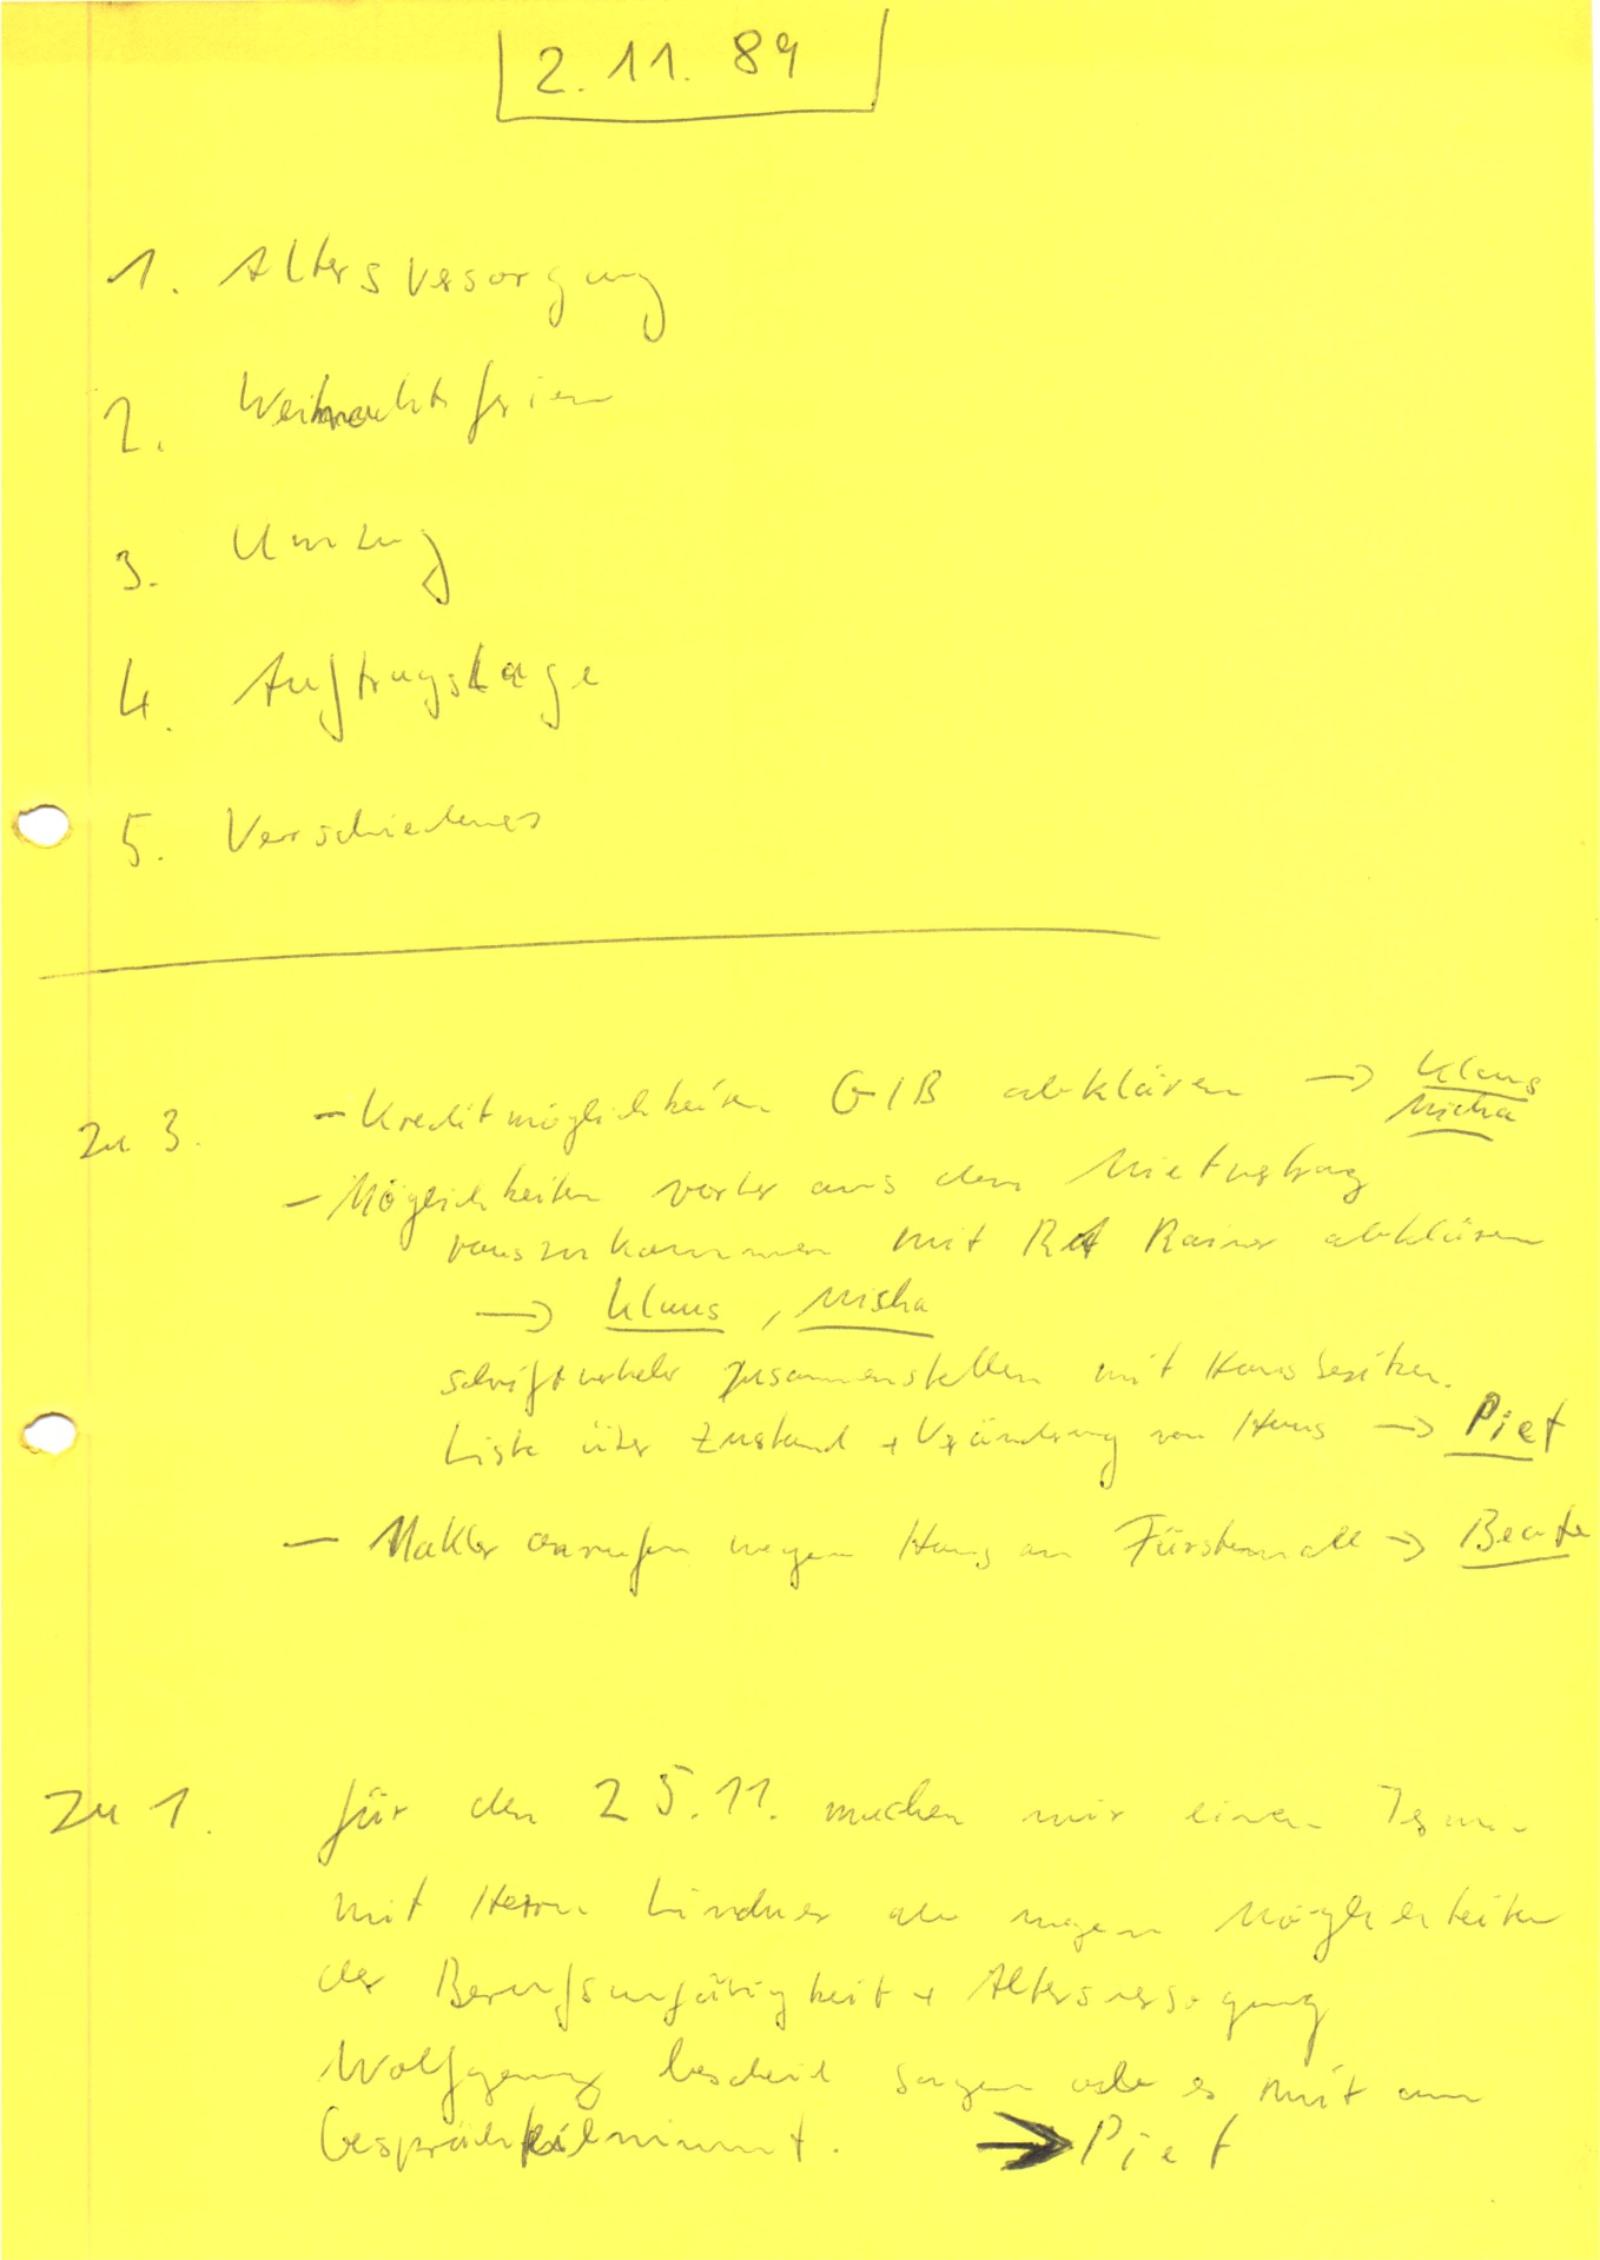 2. 11. 89
1. Altersversorgung
2. Weihnachtsferien
3. Umzug
4. Auftragslage
5. Verschiedenes
zu 3. - Kreditmöglichkeiten GIB abklären → Klaus
Micha
- Möglichkeiten vorher aus dem Mietvertrag
rauszukommen mit RA Rainer abklären
→ Klaus, Micha
Schriftverkehr zusammenstellen mit Hausbesitzer.
Liste über Zustand + Veränderung von Haus → Piet
- Makler anrufen wegen Haus am Fürstenwall → Beate
zu 1. für den 25.11. machen wir einen Termin
mit Herrn Lindner ab wegen Möglichkeiten
der Berufsunfähigkeit + Altersversorgung
Wolfgang bescheid sagen ob er mit am
Gespräch teilnimmt. → Piet